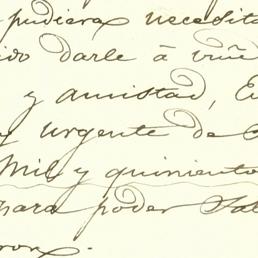 pudiera necesita
ido darle á
y amistad,
urgente de
Mil y quiniento
para poder